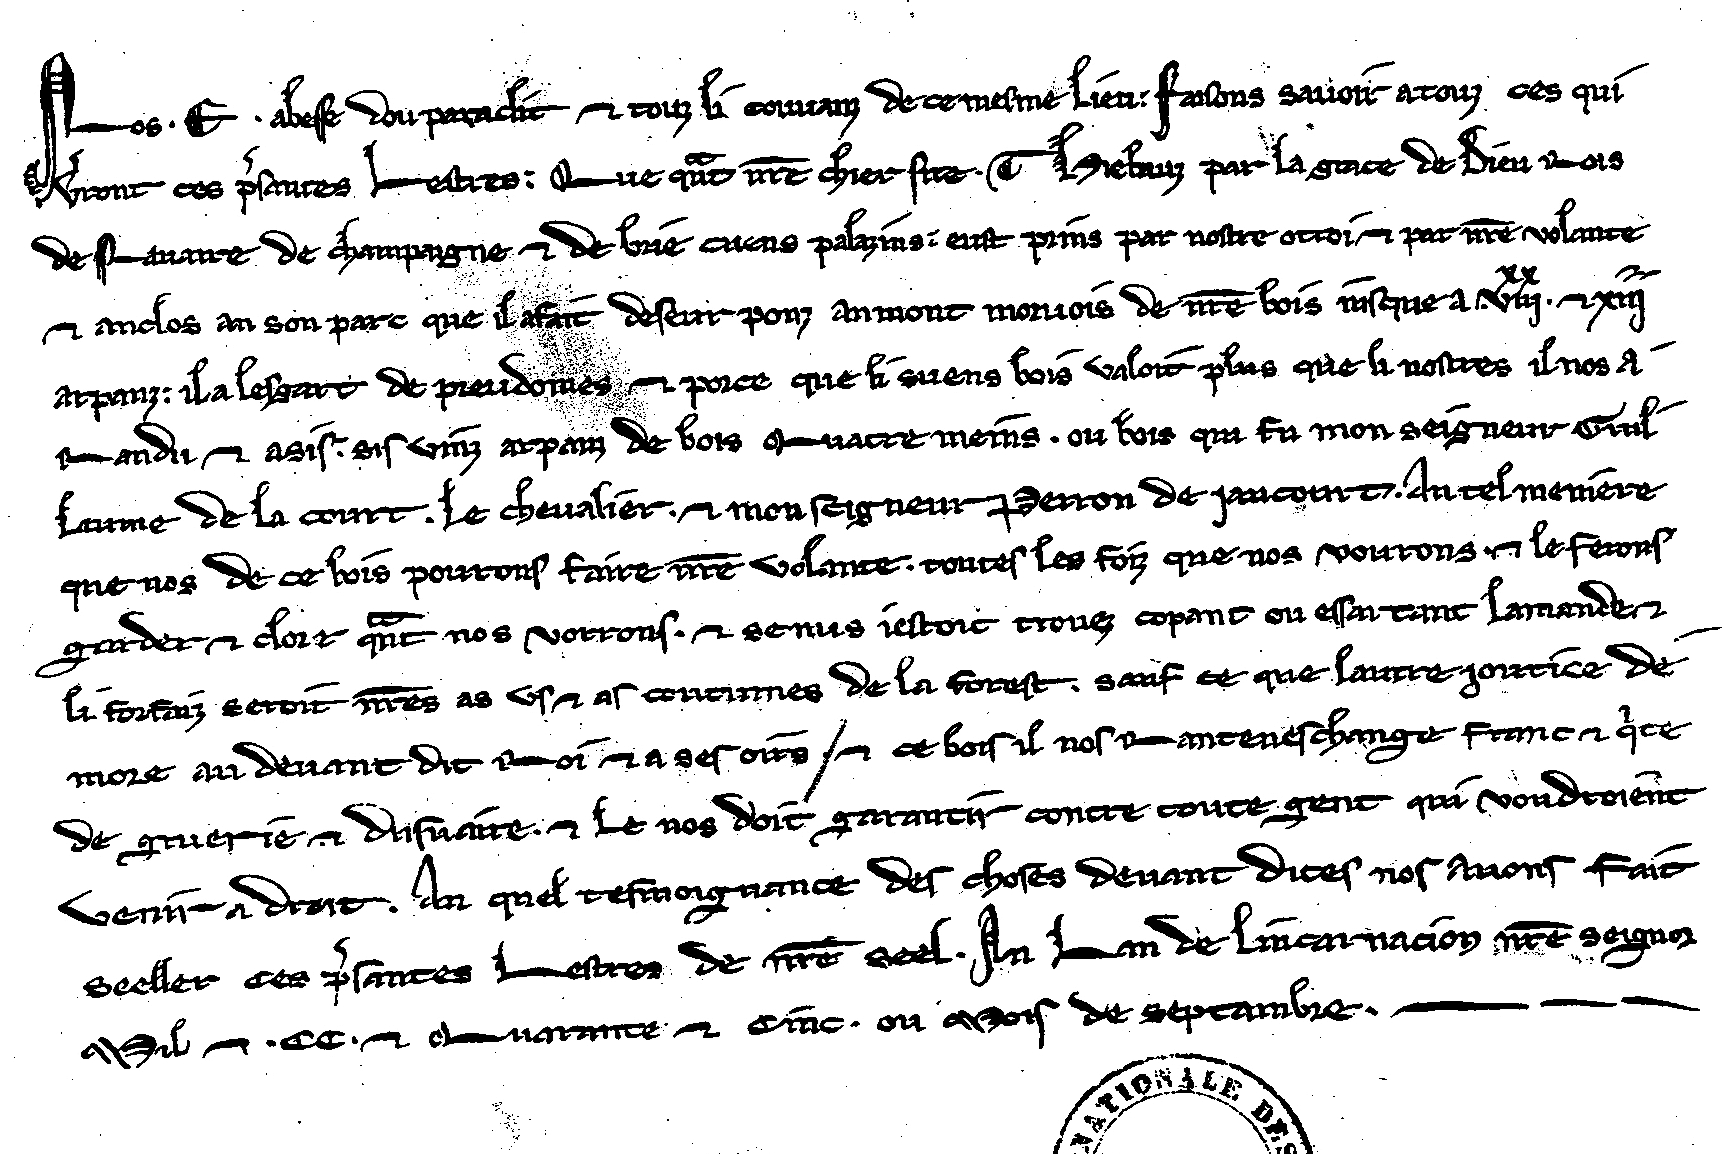 Nos . E . abesse dou paraclit ⁊ touz li couuanz de ce mesme lieu: faisons sauoir a touz ces qui
verront ces p̃santes Lestres: Que qñt nr̃e chier sire . Thiebauz par la grace de Dieu Rois
de Nauarre de champaigne ⁊ de brie cuens palazins: eust prins par nostre otroi ⁊ par nr̃e volante
⁊ anclos an son parc que il a fait deseur ponz an mont moruois de nr̃e bois iusque a .viijxx. ⁊ xiiij
arpanz: il a lesgart de preudomes ⁊ por ce que li suens bois valoit plus que li nostres il nos a
Randu ⁊ asis . sis vinz arpanz de bois Quatre meins . ou bois qui fu mon seigneur Guil
laume de la court . Le cheualier . ⁊ mon seigneur Perron de jaucourt . An tel meniere
que nos de ce bois pourons faire nr̃e volante . toutes les foiz que nos vourons . ⁊ le ferons
garder ⁊ clorre qñt nos vorrons . ⁊ se nus i estoit trouez copant ou essartant lamande ⁊
li forfaiz seroit nr̃es as vs ⁊ as coutumes de la forest . sauf ce que lautre joutice de
more au deuant dit Roi ⁊ a ses oirs / ⁊ ce bois il nos Rant en eschange franc ⁊ q̃te
de gruerie ⁊ dusuaire . ⁊ Le nos doit garantir contre toute gent qui voudroient
venir a droit . An quel tesmoignance des choses deuant dites nos auons fait
seeller ces p̃santes Lestres de nr̃e seel . An Lan de lincarnacion nr̃e seignor
Mil ⁊ . CC . ⁊ Quarante ⁊ Cinc . ou Mois de septambre .
NATIONALE DES